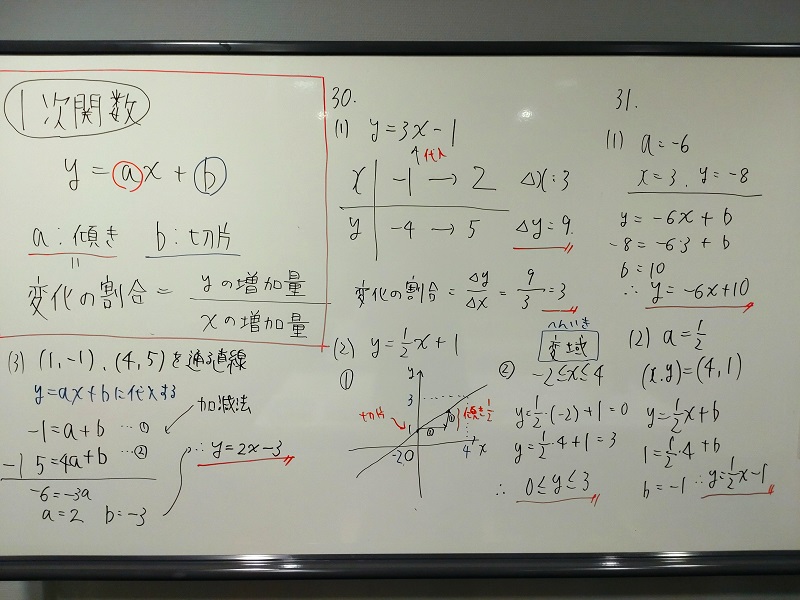 1次関数
y = ax + b
a:傾き b:切片
=
変化の割合 = yの増加量 / xの増加量
(3) (1, -1), (4, 5)を通る直線
y=ax+bに代入する
加減法
-1=a+b …①
-) 5=4a+b …②
-6=-3a
a=2 b=-3
∴ y=2x-3
30.
(1) y=3x-1
代入
x | -1 → 2 Δx:3
y | -4 → 5 Δy=9
変化の割合 = Δy/Δx = 9/3 = 3
(2) y=1/2x+1
① y
3
切片
傾き1/2
1
② ①
-2 0 4 x
へんいき
② 変域
-2≤x≤4
y=1/2·(-2)+1=0
y=1/2·4+1=3
∴ 0≤y≤3
31.
(1) a=-6
x=3, y=-8
y=-6x+b
-8=-6·3+b
b=10
∴ y=-6x+10
(2) a=1/2
(x.y)=(4,1)
y=1/2x+b
1=1/2·4+b
b=-1 ∴ y=1/2x-1